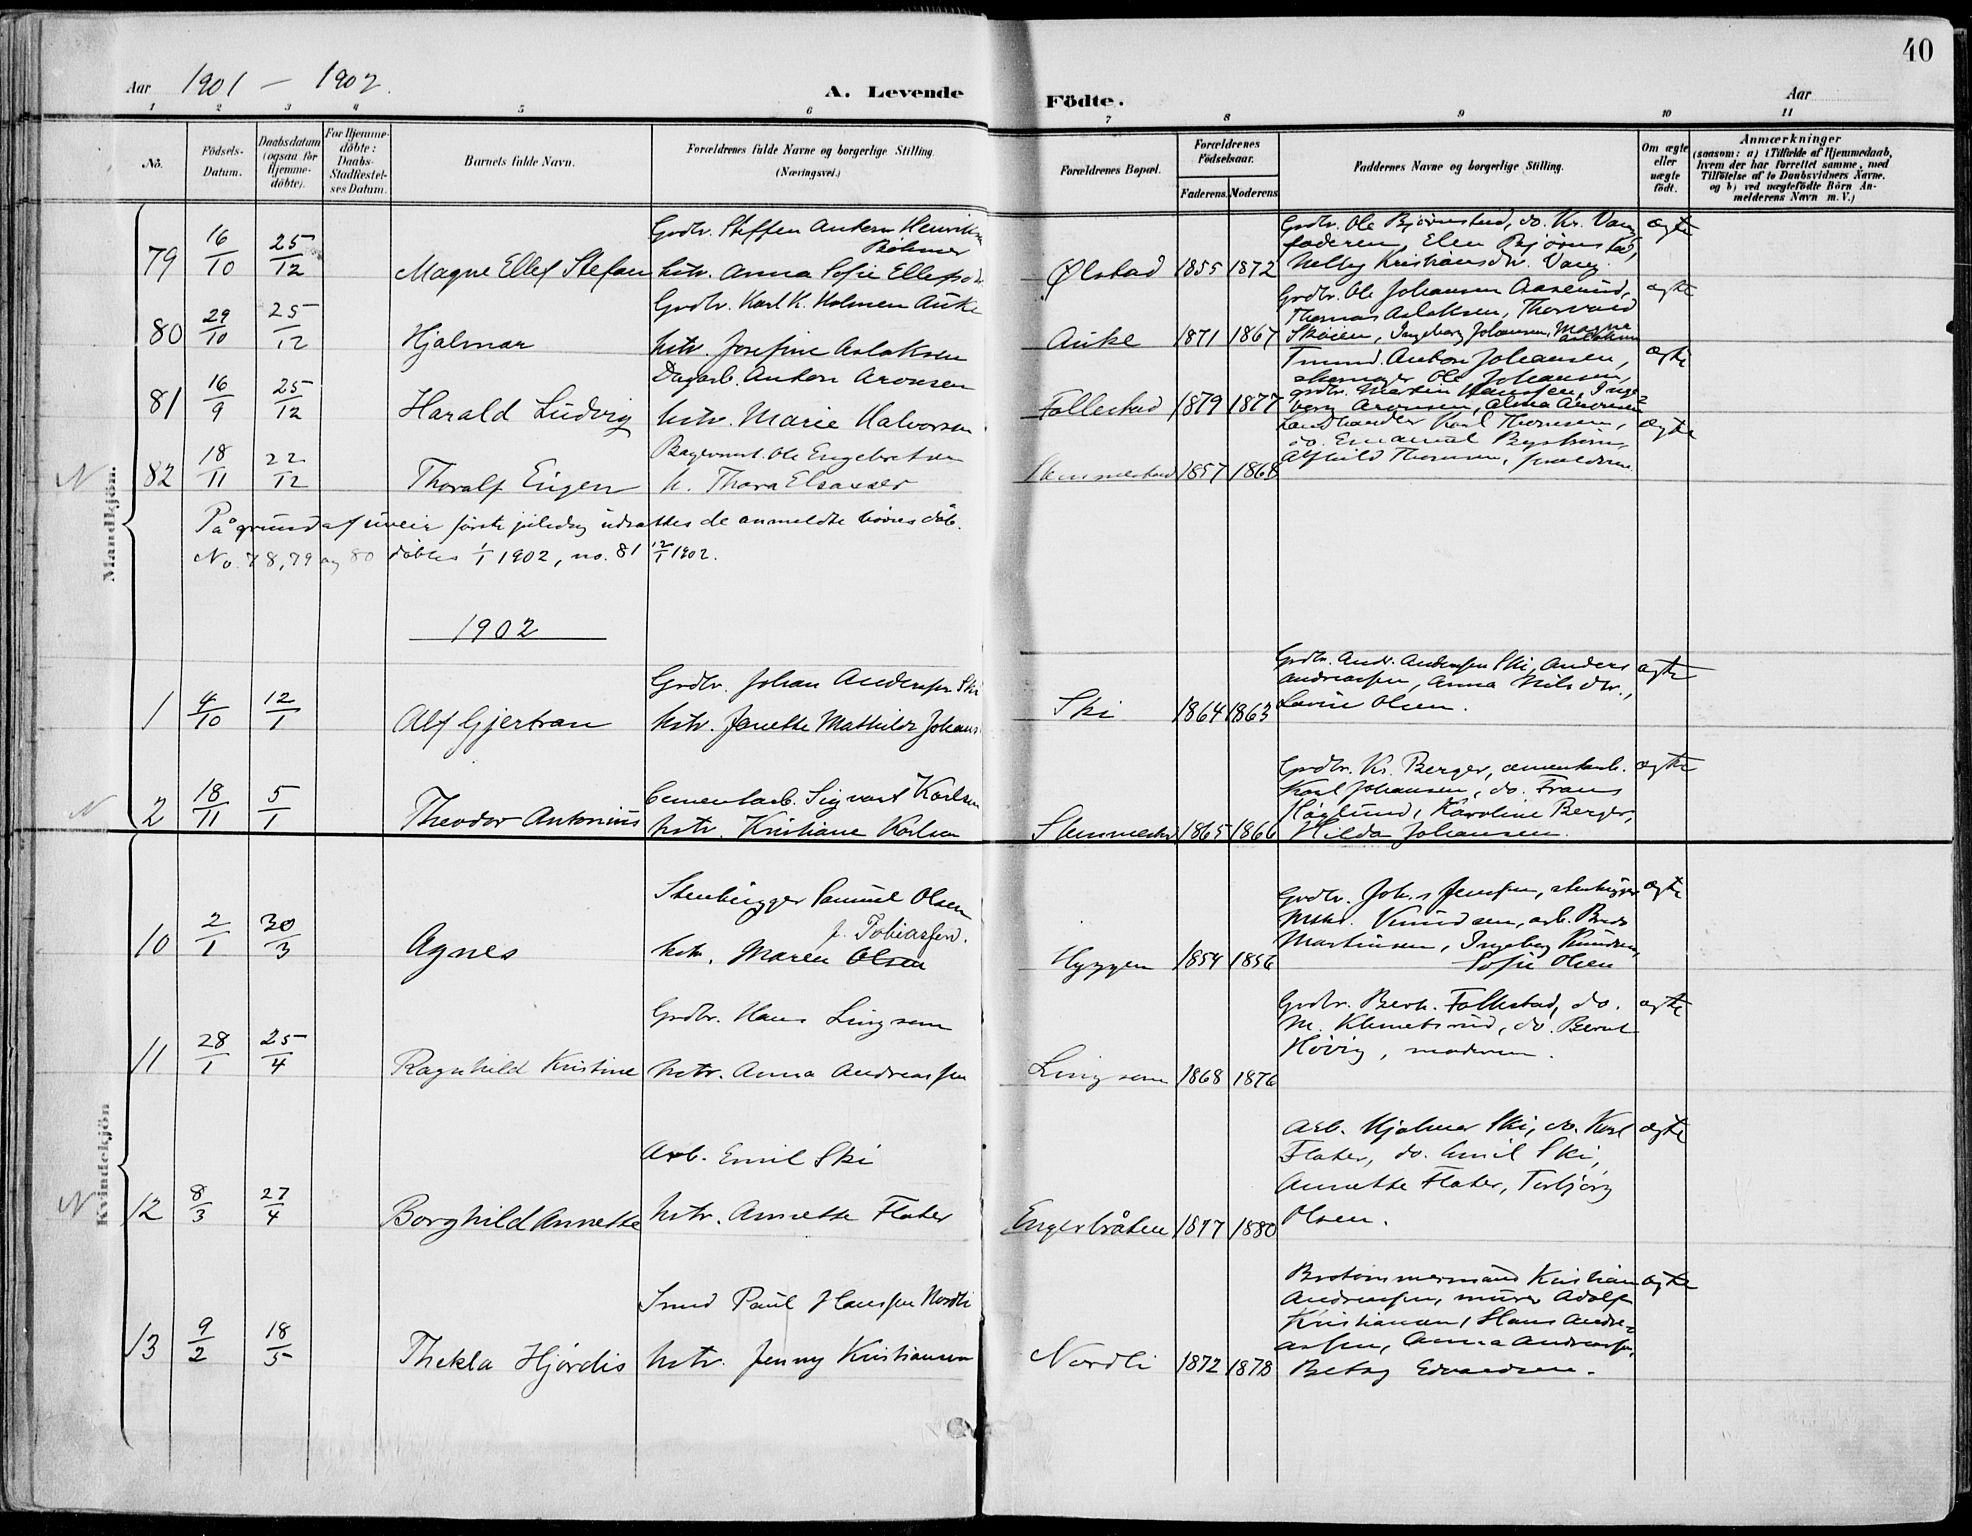 40
Aar 1901 – 1902.
A. Levende Födte.
Aar
1 2 3 4 5 6 7 8 9 10 11
No.
Födsels-Datum.
Daabsdatum (ogsaa for Hjemme-döbte).
For Hjemme-döbte: Daabs-Stadfestel-ses Datum.
Barnets fulde Navn.
Forældrenes fulde Navne og borgerlige Stilling. (Næringsvei.)
Forældrenes Bopæl.
Forældrenes Födselsaar.
Faderens. Moderens.
Faddernes Navne og borgerlige Stilling.
Om ægte eller uægte födt.
Anmærkninger
(saasom: a) i Tilfælde af Hjemmedaab, hvem der har forrettet samme, med Tilföielse af to Daabsvidners Navne, og b) ved uægtefödte Börn An-melderens Navn m. V.)
Mandkjön.
79 16/10 25/12 Magne Ellef Stefan
Grdbr. Steffen Anders Henriksen
Böhmer
hstr. Anna Sofie
Ølstad 1855 1872
Grdbr. Ole Bjørnstad, do. Kr. Vang
faderen, Elen Bjørnstad,
Nelly Kristiansdtr. Vang.
ægte
80 29/10 25/12 Hjalmar
Grdbr. Karl K. Holmen Auke
hstr. Josefine Aslaksen
Auke 1871 1867
Grdbr. Ole Johansen Aaserud,
Thomas Aslaksen, Thorvald
Skøien, Ingeborg Johansen, Magna Aslaksen
ægte
81 16/9 25/12 Harald Ludvig
Dagarb. Anton Aronsen
hstr. Marie Halvorsen
Follestad 1879 1877
Tmmd. Anton Johansen,
skomager Ole Johansen,
grdbr. Martin Hanssen, Inge-
borg Aronsen, Alma Aronsen
ægte
N 82 18/11 22/12 Thoralf Eugen
Bagermst. Ole Engebretsen
h. Thora Elsasser
Slemmestad 1857 1868
Landhandler Karl Thomsen,
do. Emanuel Bystrøm,
Alfhild Thomsen, forældrene
ægte
På grund af uveir første juledag udsattes de anmeldte børns dåb.
No. 78, 79 og 80 döbtes 1/1 1902, no. 81 12/1 1902.
1902
1 4/10 12/1 Alf Gjertran
Grdbr. Johan Andersen Ski
hstr. Janette Mathilde Johans
Ski 1864 1863
Grdbr. Andr. Andersen Ski, Anders
Andreassen, Anna Nilsdtr.,
Lovise Olsen.
ægte
N 2 18/11 5/1 Theodor Antonius
Cementarb. Sigvart Karlsen
hstr. Kristiane Karlsen
Slemmestad 1865 1866
Grdbr. Kr. Berger, cementarb.
Karl Johansen, do. Frans
Høglund, Karoline Berger,
Hilda Johansen.
ægte
Kvindekjön
10 2/1 30/3 Agnes
Stenhugger Samuel Olsen
f. Tobiassen.
hstr. Maren Olsen
Hyggen 1854 1856
Grdbr. Johs Jenssen, stenhugger
Mthr. Knudsen, arb. Bernt
Martinsen, Ingeborg Knudsen,
Sofie Olsen
ægte
11 28/1 25/4 Ragnhild Kristine
Grdbr. Hans Lingsom
hstr. Anna Andreassen
Lingsom 1868 1876
Grdbr. Berh. Follestad, do.
M. Klemetsrud, do. Bernt
Høvig, moderen.
ægte
N 12 8/3 27/4 Borghild Annette
Arb. Emil Ski
hstr. Annette Flater
Engerbråten 1877 1880
Arb. Hjalmar Ski, do. Karl
Flater, do. Emil Ski,
Annette Flater, Torbjörg
Olsen.
ægte
13 9/2 18/5 Thekla Hjördis
Smed Paul Hanssen Nordli
hstr. Jenny Kristiansen
Nordli 1872 1878
Brotømmermand Kristian
Andreassen, murer Adolf
Kristiansen, Hans Andre-
assen, Anna Andreassen,
Betsy Edvardsen.
ægte